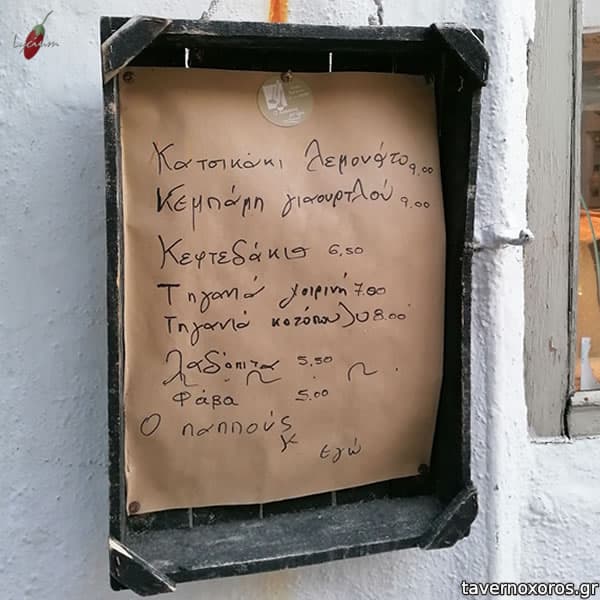 Lycium
Κατσικάκι λεμονάτο 9,00
Κεμπάπ γιαουρτλού 9.00
Κεφτεδάκια 6,50
Τηγανιά χοιρινή 7.00
Τηγανιά κοτόπουλο 8.00
Λαδόπιτα 5,50
Φάβα 5.00
Ο παππούς
κ εγώ
tavernoxoros.gr